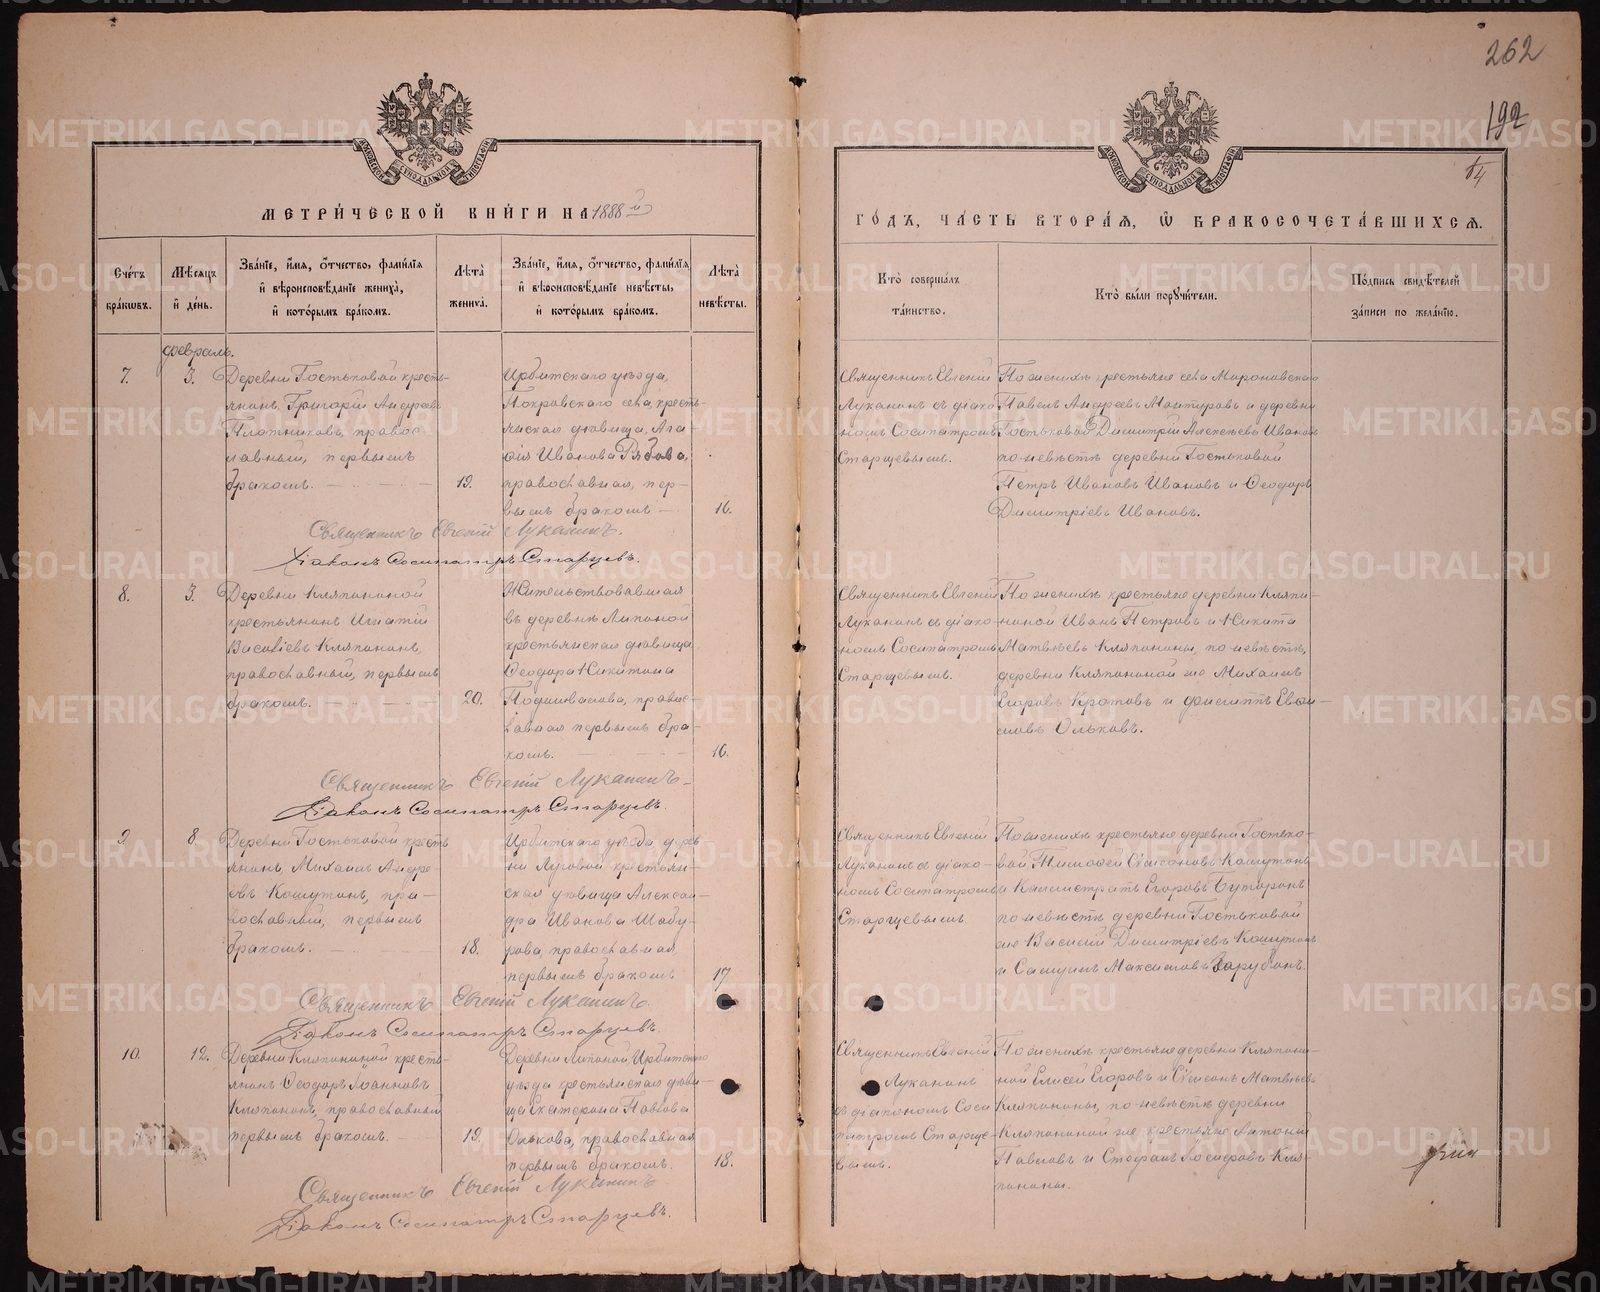 262
192
МОСКОВСКОЙ СѴНОДАЛЬНОЙ ТИПОГРАФІИ
МОСКОВСКОЙ СѴНОДАЛЬНОЙ ТИПОГРАФІИ
МЕТРИ́ЧЕСКОЙ КНИ́ГИ НА 1888й
ГО́ДЪ, ЧА́СТЬ ВТОРА́Я, Ѡ БРАКОСОЧЕТА́ВШИХСЯ.
Сче́тъ бра́ковъ.
Мѣ́сяцъ и де́нь.
Зва́нїе, и́мя, о́тчество, фами́лїя и вѣроисповѣ́данїе жениха́, и кото́рымъ бра́комъ.
Лѣта̀ жениха̀.
Зва́нїе, и́мя, о́тчество, фами́лїя и вѣроисповѣ́данїе невѣ́сты, и кото́рымъ бра́комъ.
Лѣта̀ невѣ́сты.
Кто̀ соверша́лъ та́инство.
Кто̀ бы́ли поручи́тели.
По́дпись свидѣ́телей за́писи по жела́нїю.
февраль.
7.
3.
Деревни Гостьковой кресть-
янинъ Григорій Андреевъ
Плотниковъ, правос-
лавный, первымъ
бракомъ.
19.
Ирбитскаго уѣзда,
Покровскаго села, кресть-
янская дѣвица, Ага-
фія Иванова Рябова,
православная, пер-
вымъ бракомъ
16.
Священникъ Евгеній
Луканинъ съ діако-
номъ Сосипатромъ
Старцевымъ.
По женихѣ крестьяне села Мироновскаго
Павелъ Андреевъ Мантуровъ и деревни
Гостьковой Димитрій Алексѣевъ Ивановъ
по невѣстѣ деревни Гостьковой
Петръ Ивановъ Ивановъ и Ѳеодоръ
Димитріевъ Ивановъ.
Священникъ Евгеній Луканинъ.
Діаконъ Сосипатръ Старцевъ.
8.
3.
Деревни Кляпининой
крестьянинъ Игнатій
Кляпининъ,
православный, первымъ
бракомъ.
20.
Жительствовавшая
въ деревнѣ Липиной
крестьянская дѣвица
Ѳеодора Никитина
православная
первымъ бра-
комъ.
16.
Священникъ Евгеній
Луканинъ съ діако-
номъ Сосипатромъ
Старцевымъ.
По женихѣ крестьяне деревни Кляпи-
ниной Иванъ Петровъ и Никита
Матвѣевъ Кляпинины, по невѣстѣ,
деревни Кляпининой же Михаилъ
Егоровъ Кротовъ и Филиппъ
Ольковъ.
Священникъ Евгеній Луканинъ.
Діаконъ Сосипатръ Старцевъ.
9
8.
Деревни Гостьковой кресть
янинъ, Михаилъ Андре-
евъ Кошутинъ, пра-
вославный, первымъ
бракомъ.
18.
Ирбитскаго уѣзда дерев
ни Луговой крестьян-
ская дѣвица Алексан-
дра Иванова Шабу-
рова, православная,
первымъ бракомъ
17
Священникъ Евгеній
Луканинъ съ діако-
номъ Сосипатромъ
Старцевымъ
По женихѣ крестьяне деревни Гостько-
вой Тимоѳей Кошутинъ
и Калистратъ Егоровъ
по невѣстѣ деревни Гостьковой
же Василій Димитріевъ Кошутинъ
и Максимовъ Зарубинъ.
Священникъ Евгеній Луканинъ.
Діаконъ Сосипатръ Старцевъ.
10.
12.
Деревни Кляпининой кресть-
янинъ Ѳеодоръ Іоанновъ
Кляпининъ, православный
первымъ бракомъ.
19.
Деревни Липиной, Ирбитскаго
уѣзда крестьянская дѣви-
ца Екатерина Павлова
Олькова, православная
первымъ бракомъ.
18.
Священникъ Евгеній
Луканинъ
съ діакономъ Соси-
патромъ Старце-
вымъ.
По женихѣ крестьяне деревни Кляпини-
ной Елисей Егоровъ и Матвѣевъ
Кляпинины, по невѣстѣ деревни
Кляпининой же крестьяне Антоній
Павловъ и Стефанъ Кля-
пинины.
Священникъ Евгеній Луканинъ.
Діаконъ Сосипатръ Старцевъ.
METRIKI.GASO-URAL.RU